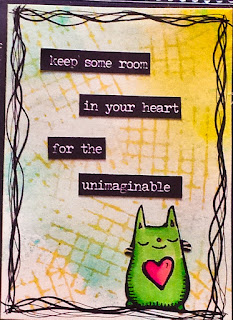 keep some room
in your heart
for the
unimaginable